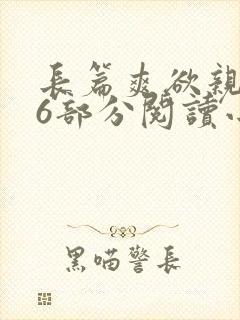 長篇爽欲親
6部分閱讀
黑喵警長